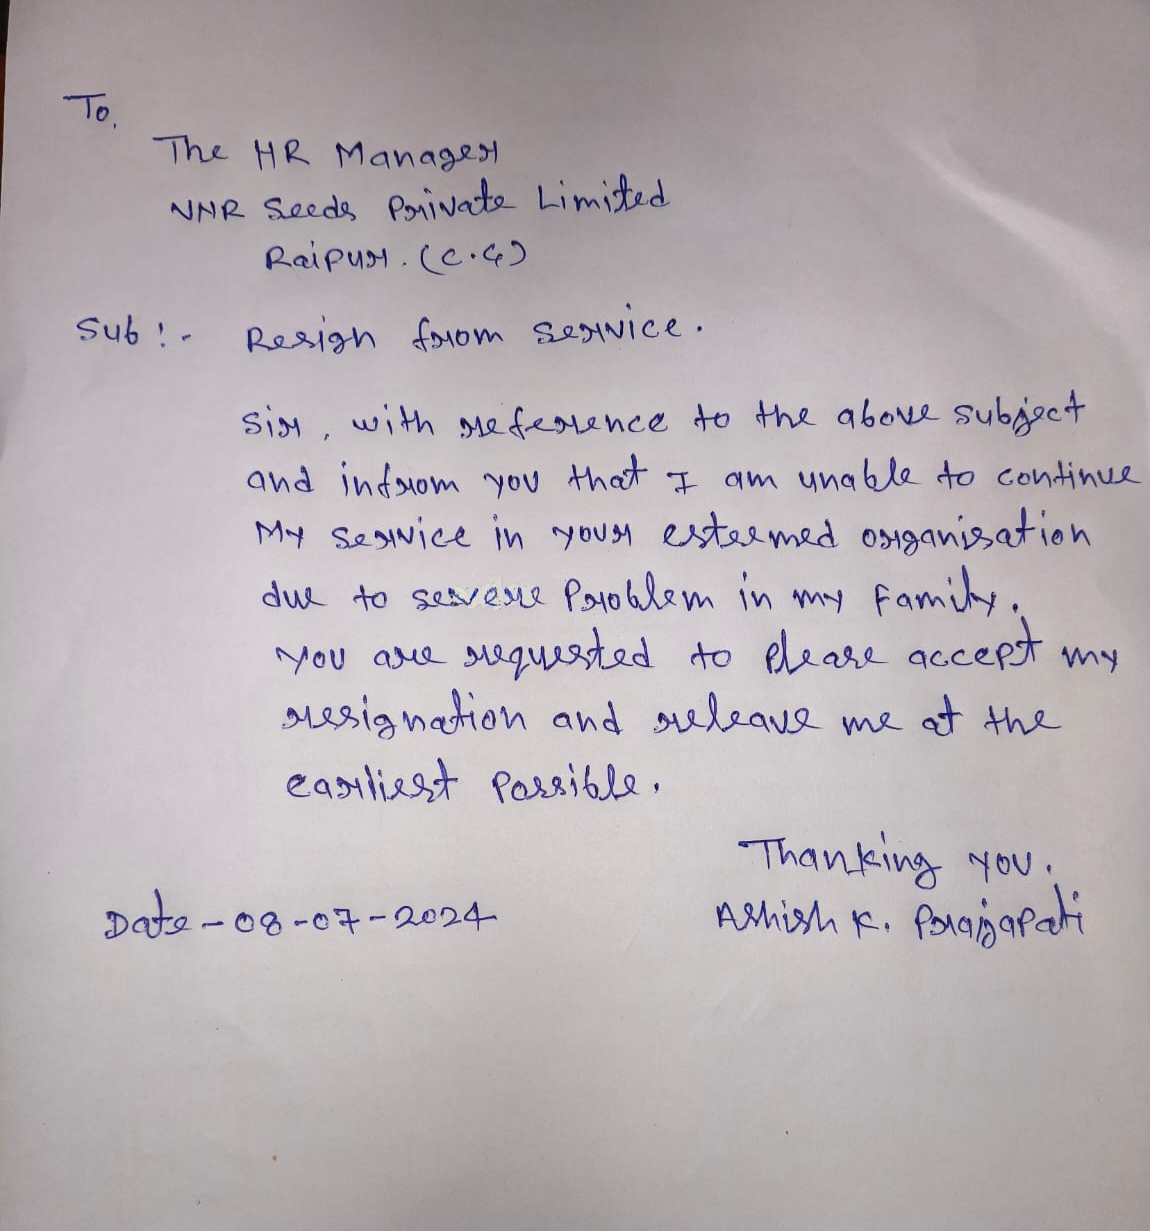 To,
The HR Manager
NNR Seeds Private Limited
Raipur. (C.G)
Sub :- Resign from service.
Sir, with reference to the above subject
and infrom you that I am unable to continue
My service in your esteemed organisation
due to severe Problem in my family.
You are requested to please accept my
resignation and releave me at the
earliest Possible.
Thanking you.
Date - 08-07-2024 Ashish K. Prajapati